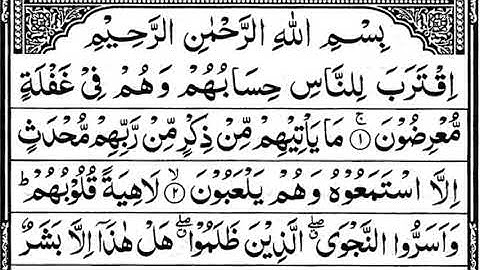 بِسْمِ اللهِ الرَّحْمٰنِ الرَّحِيْمِ
اِقْتَرَبَ لِلنَّاسِ حِسَابُهُمْ وَهُمْ فِيْ غَفْلَةٍ
مُّعْرِضُوْنَ ۚ﴿۱﴾ مَا يَاْتِيْهِمْ مِّنْ ذِكْرٍ مِّنْ رَّبِّهِمْ مُّحْدَثٍ
اِلَّا اسْتَمَعُوْهُ وَهُمْ يَلْعَبُوْنَ ۙ﴿۲﴾ لَاهِيَةً قُلُوْبُهُمْ ؕ
وَاَسَرُّوا النَّجْوَى ۖ الَّذِيْنَ ظَلَمُوْا ۖ هَلْ هٰذَاۤ اِلَّا بَشَرٌ